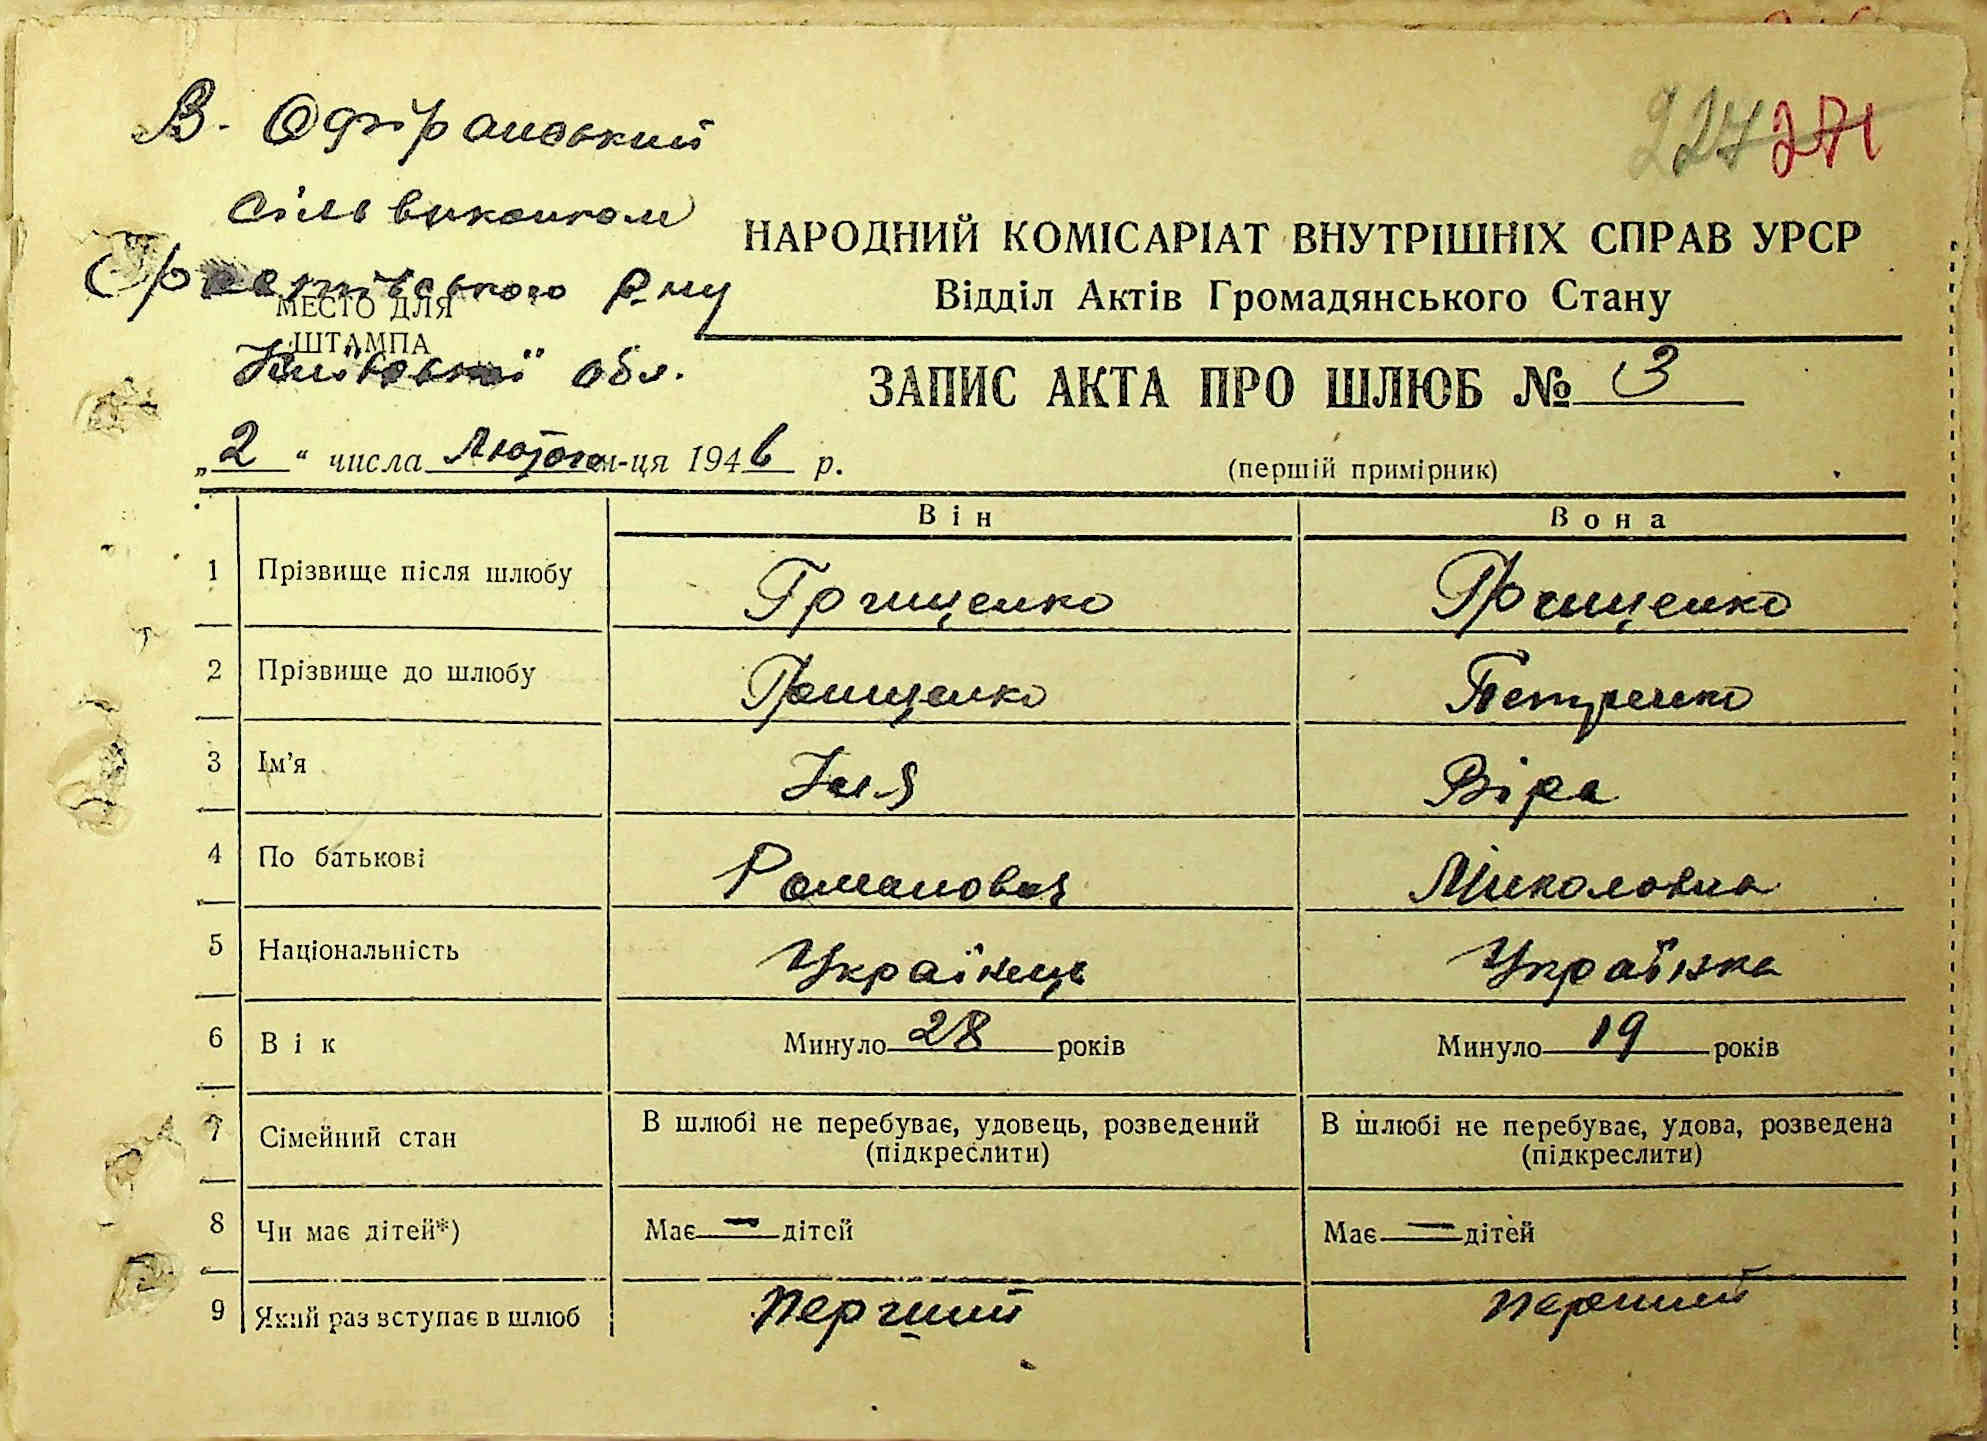 В. Офірнянський
сільвиконком
Фастівського р-ну
МЕСТО ДЛЯ
ШТАМПА
Київської обл.
227 271
НАРОДНИЙ КОМІСАРІАТ ВНУТРІШНІХ СПРАВ УРСР
Відділ Актів Громадянського Стану
ЗАПИС АКТА ПРО ШЛЮБ № 3
„2“ числа Лютого м-ця 1946 р.
(першій примірник)
Він Вона
1 Прізвище після шлюбу Грищенко Грищенко
2 Прізвище до шлюбу Грищенко Петренко
3 Ім'я Ілля Віра
4 По батькові Романович Миколовна
5 Національність Українець Українка
6 Вік Минуло 28 років Минуло 19 років
7 Сімейний стан В шлюбі не перебуває, удовець, розведений (підкреслити) В шлюбі не перебуває, удова, розведена (підкреслити)
8 Чи має дітей*) Має — дітей Має — дітей
9 Який раз вступає в шлюб перший перший